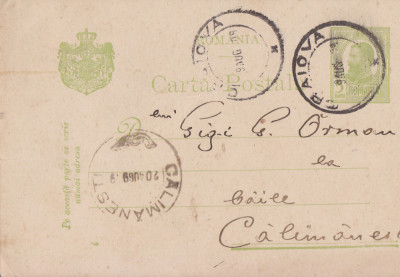 ROMANIA
Carta Postala
CRAIOVA
CRAIOVA
D
lui Gigi G. Orman
la
Băile
Călimănes
CĂLIMĂNEȘTI
20 AUG 9
Pe această pagină se scrie
numai adresa